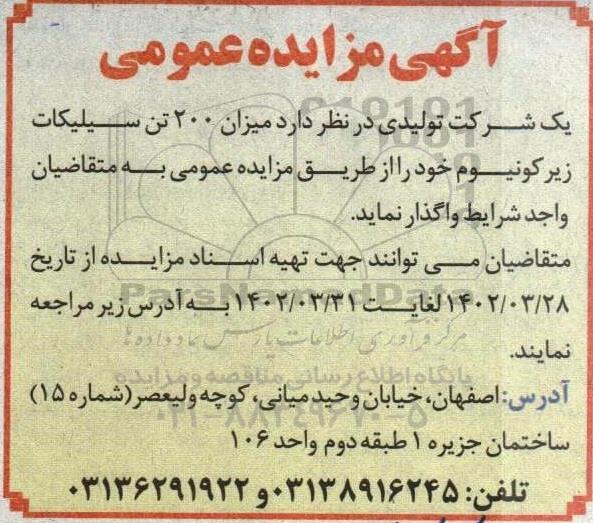 آگهی مزایده عمومی
یک شرکت تولیدی در نظر دارد میزان ۲۰۰ تن سیلیکات
زیرکونیوم خود را از طریق مزایده عمومی به متقاضیان
واجد شرایط واگذار نماید.
متقاضیان می توانند جهت تهیه اسناد مزایده از تاریخ
۱۴۰۲/۰۳/۲۸ لغایت ۱۴۰۲/۰۳/۳۱ به آدرس زیر مراجعه
نمایند.
آدرس: اصفهان، خیابان وحید میانی، کوچه ولیعصر (شماره ۱۵)
ساختمان جزیره ۱ طبقه دوم واحد ۱۰۶
تلفن: ۰۳۱۳۸۹۱۶۲۴۵ و ۰۳۱۳۶۲۹۱۹۲۲
ParsNamadData
مرکز فرآوری اطلاعات پارس نماد داده ها
پایگاه اطلاع رسانی مناقصه و مزایده